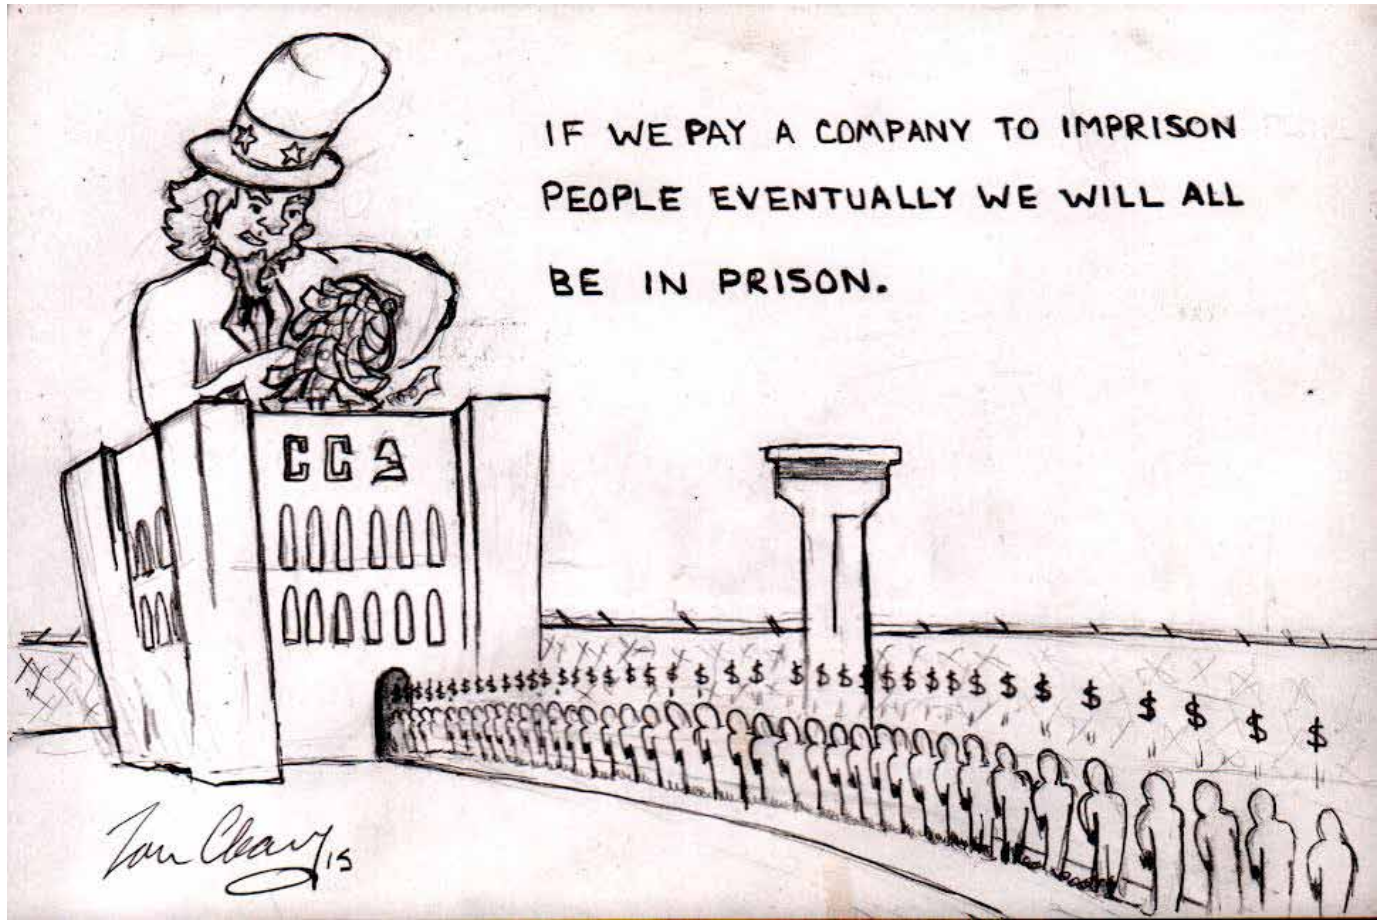 IF WE PAY A COMPANY TO IMPRISON
PEOPLE EVENTUALLY WE WILL ALL
BE IN PRISON.
CCA
$ $ $ $ $ $ $ $ $ $ $ $ $ $ $ $ $ $ $ $ $ $ $ $ $ $ $ $ $ $ $ $ $ $ $
Tom Cleary 15